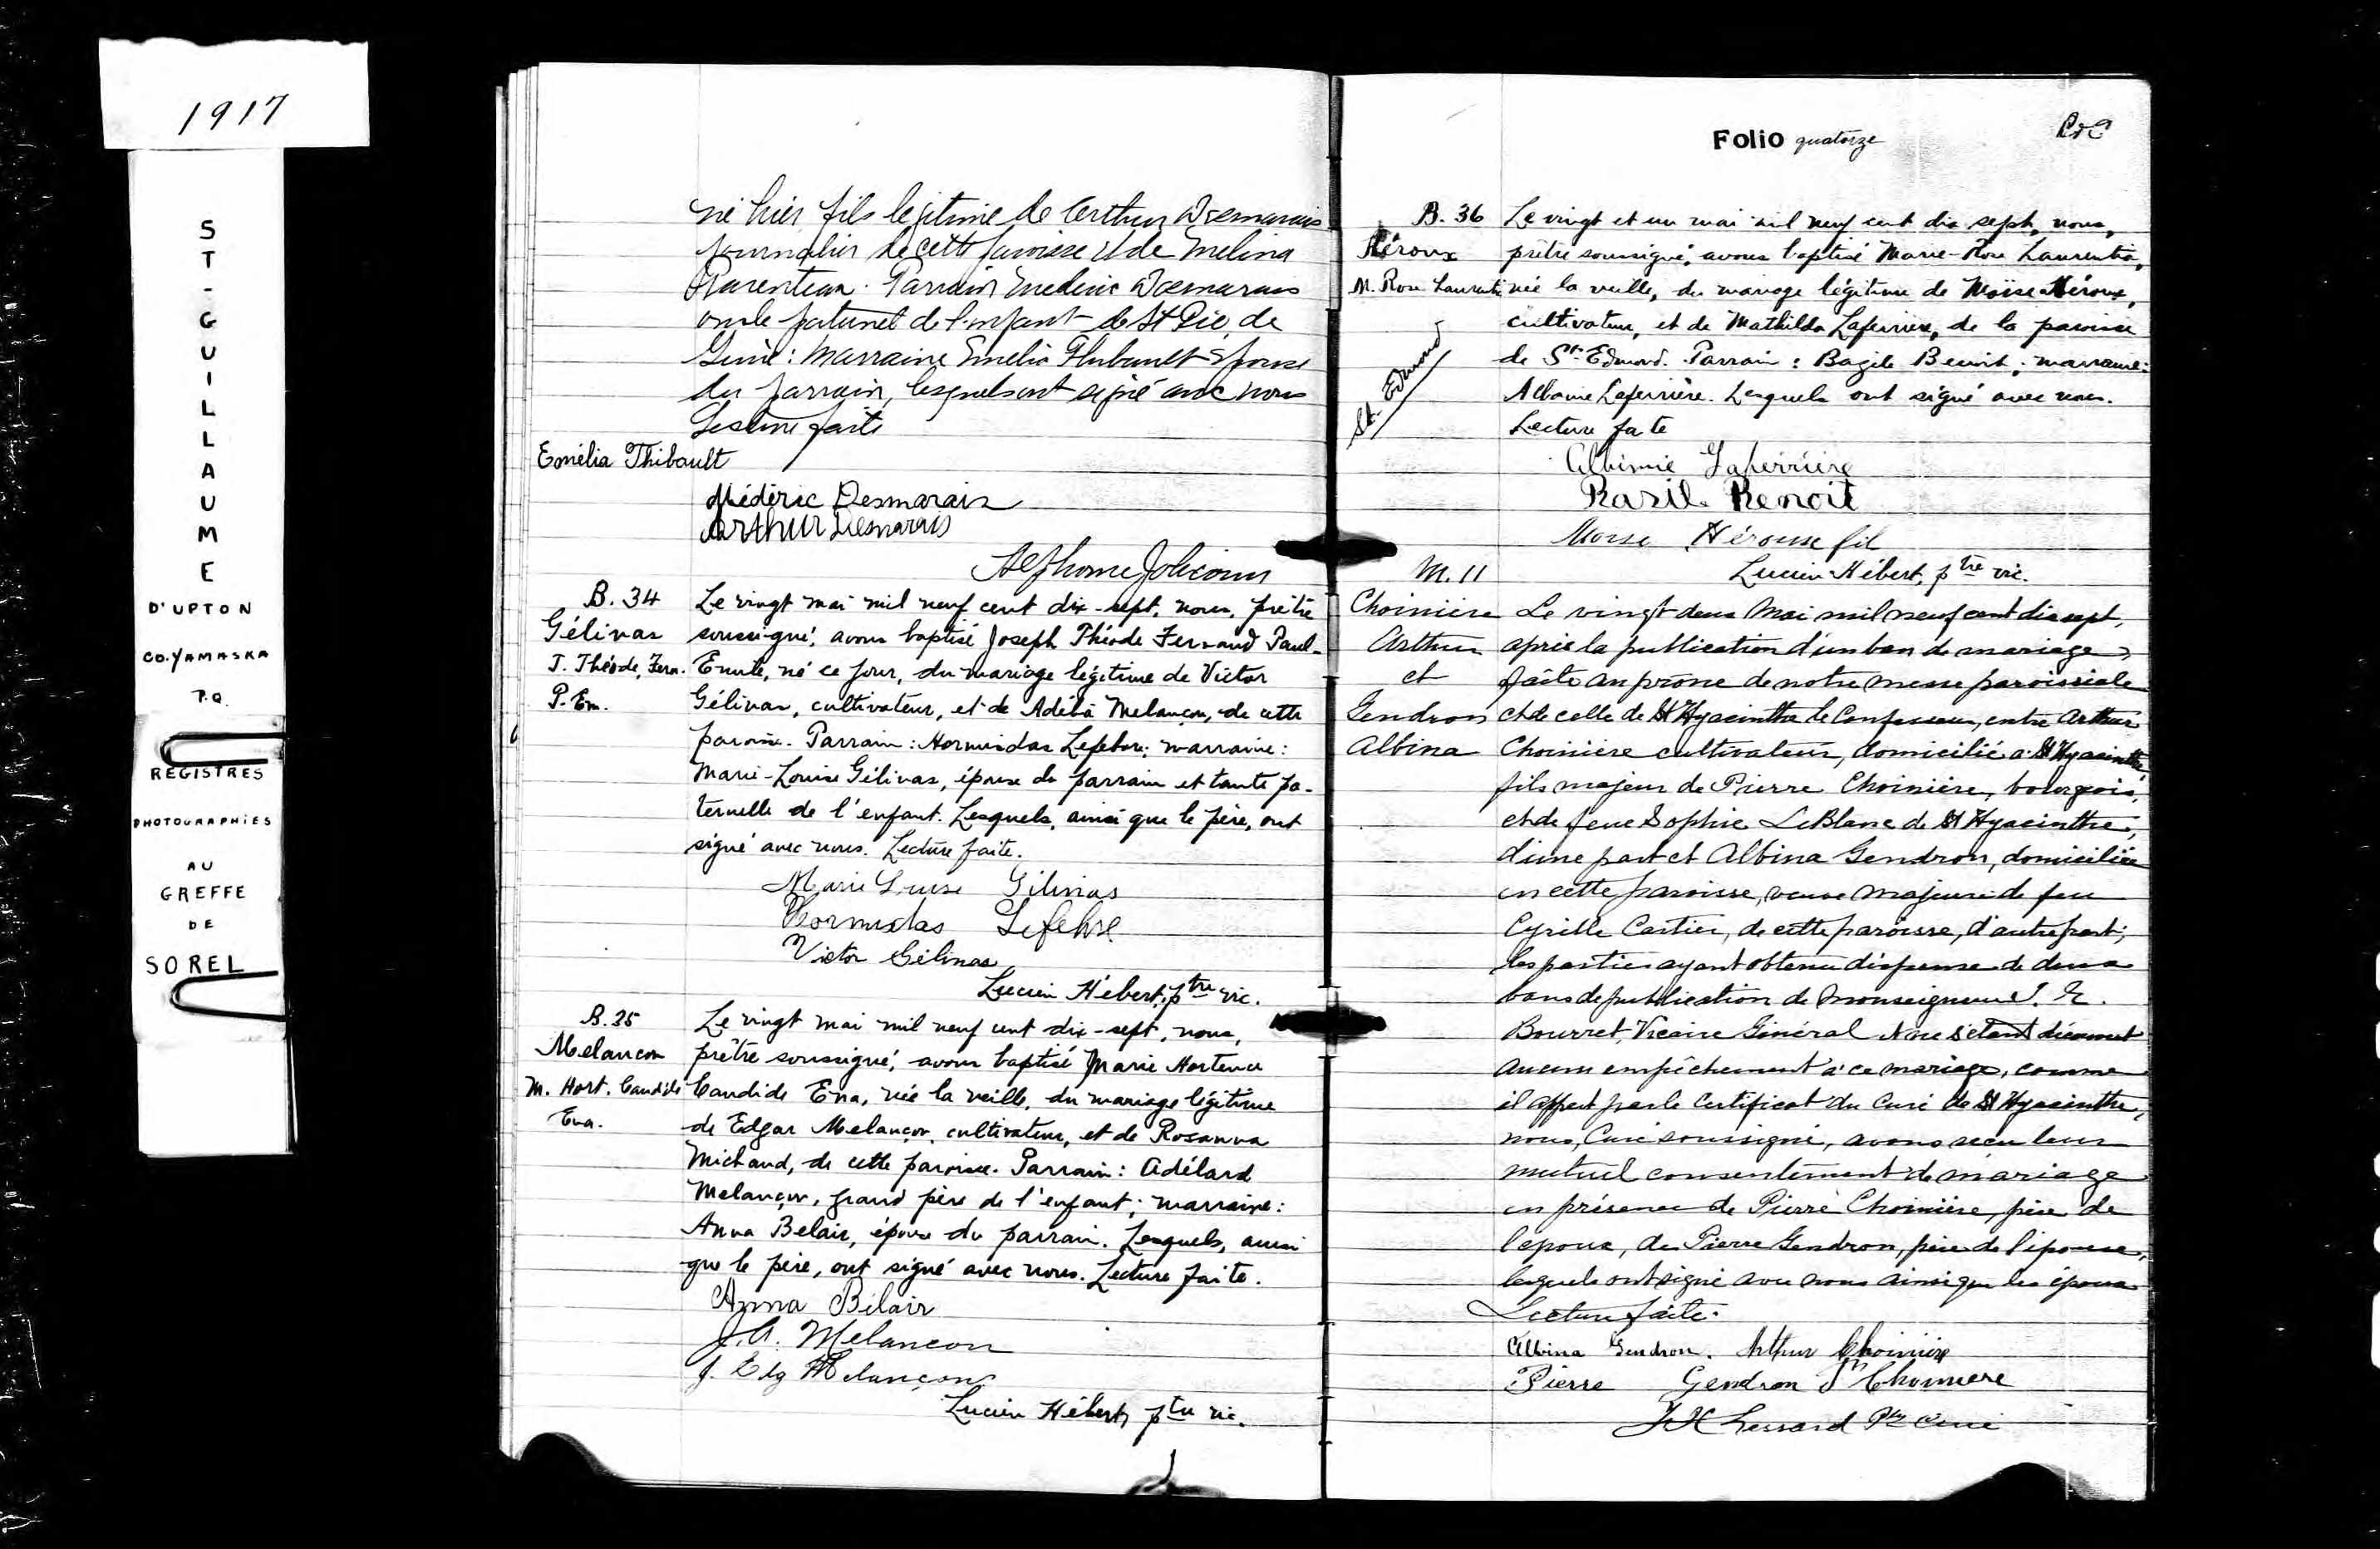 1917
ST-GUILLAUME
D'UPTON
CO. YAMASKA
P.Q.
REGISTRES
PHOTOGRAPHIÉS
AU
GREFFE
DE
SOREL
né hier fils légitime de Arthur Desmarais
journalier de cette paroisse et de Melina
Parenteau. Parrain Mederic Desmarais
oncle paternel de l'enfant de St Pie de
Guire: Marraine Emelia Thibault épouse
du parrain, lesquels ont signé avec nous
Lecture faite
Emélia Thibault
Médéric Desmarais
Arthur Desmarais
Alphonse Jolicoeur
B. 34
Gélinas
J. Théode, Fern.
P. Em.
Le vingt mai mil neuf cent dix-sept, nous, prêtre
soussigné, avons baptisé Joseph Théode Fernand Paul-
Emile, né ce jour, du mariage légitime de Victor
Gélinas, cultivateur, et de Adéla Melançon, de cette
paroisse. Parrain: Hormisdas Lefebvre; marraine:
Marie-Louise Gélinas, épouse du parrain et tante pa-
ternelle de l'enfant. Lesquels, ainsi que le père, ont
signé avec nous. Lecture faite.
Marie Louise Gélinas
Hormisdas Lefebvre
Victor Gélinas
Lucien Hébert, ptre vic.
B. 35
Melancon
M. Hort. Candide
Eva.
Le vingt mai mil neuf cent dix-sept, nous,
prêtre soussigné, avons baptisé Marie Hortence
Candide Eva, née la veille, du mariage légitime
de Edgar Melançon, cultivateur, et de Rosanna
Michaud, de cette paroisse. Parrain: Adélard
Melançon, grand père de l'enfant; marraine:
Anna Belair, épouse du parrain. Lesquels, ainsi
que le père, ont signé avec nous. Lecture faite.
Anna Bélair
J. A. Melancon
J. Edg Melançon
Lucien Hébert, ptre vic.
Folio quatorze
B. 36
Héroux
M. Rose Laurentia
St. Edmond
Le vingt et un mai mil neuf cent dix sept, nous,
prêtre soussigné, avons baptisé Marie-Rose Laurentia,
née la veille, du mariage légitime de Moïse Héroux,
cultivateur, et de Mathilda Laferrière, de la paroisse
de St-Edmond. Parrain: Bazile Benoit; marraine:
Albanie Laferrière. Lesquels ont signé avec nous.
Lecture faite
Laferrière
Basile Benoit
Moise Héroux fil
Lucien Hébert, ptre vic.
M. 11
Choinière
Arthur
et
Gendron
Albina
Le vingt deux Mai mil neuf cent dix sept,
après la publication d'un ban de mariage
faite au prône de notre messe paroissiale
et de celle de St Hyacinthe le Confesseur, entre Arthur
Choinière cultivateur, domicilié à St Hyacinthe,
fils majeur de Pierre Choinière, bourgeois,
et de feue Sophie LeBlanc de St Hyacinthe,
d'une part et Albina Gendron, domiciliée
en cette paroisse, veuve majeure de feu
Cyrille Cartier, de cette paroisse, d'autre part;
les parties ayant obtenu dispense de deux
bans de publication de Monseigneur
Bourret, Vicaire Général et ne s'étant découvert
aucun empêchement à ce mariage, comme
il appert par le Certificat du Curé de St Hyacinthe,
nous, Curé soussigné, avons reçu leur
mutuel consentement de mariage
en présence de Pierre Choinière, père de
l'époux, de Pierre Gendron, père de l'épouse,
lesquels ont signé avec nous ainsi que les époux
Lecture faite.
Albina Gendron. Arthur Choinière
Pierre Gendron Pre Choiniere
Lessard Ptre Curé